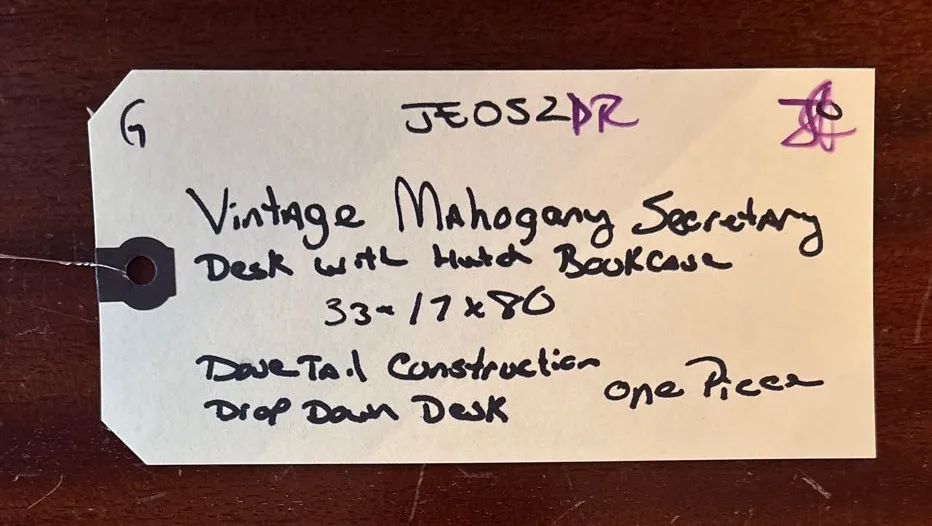 G JE052DR
Vintage Mahogany Secretary
Desk with Hutch Bookcase
33x17x80
DoveTail Construction
Drop Down Desk
One Piece